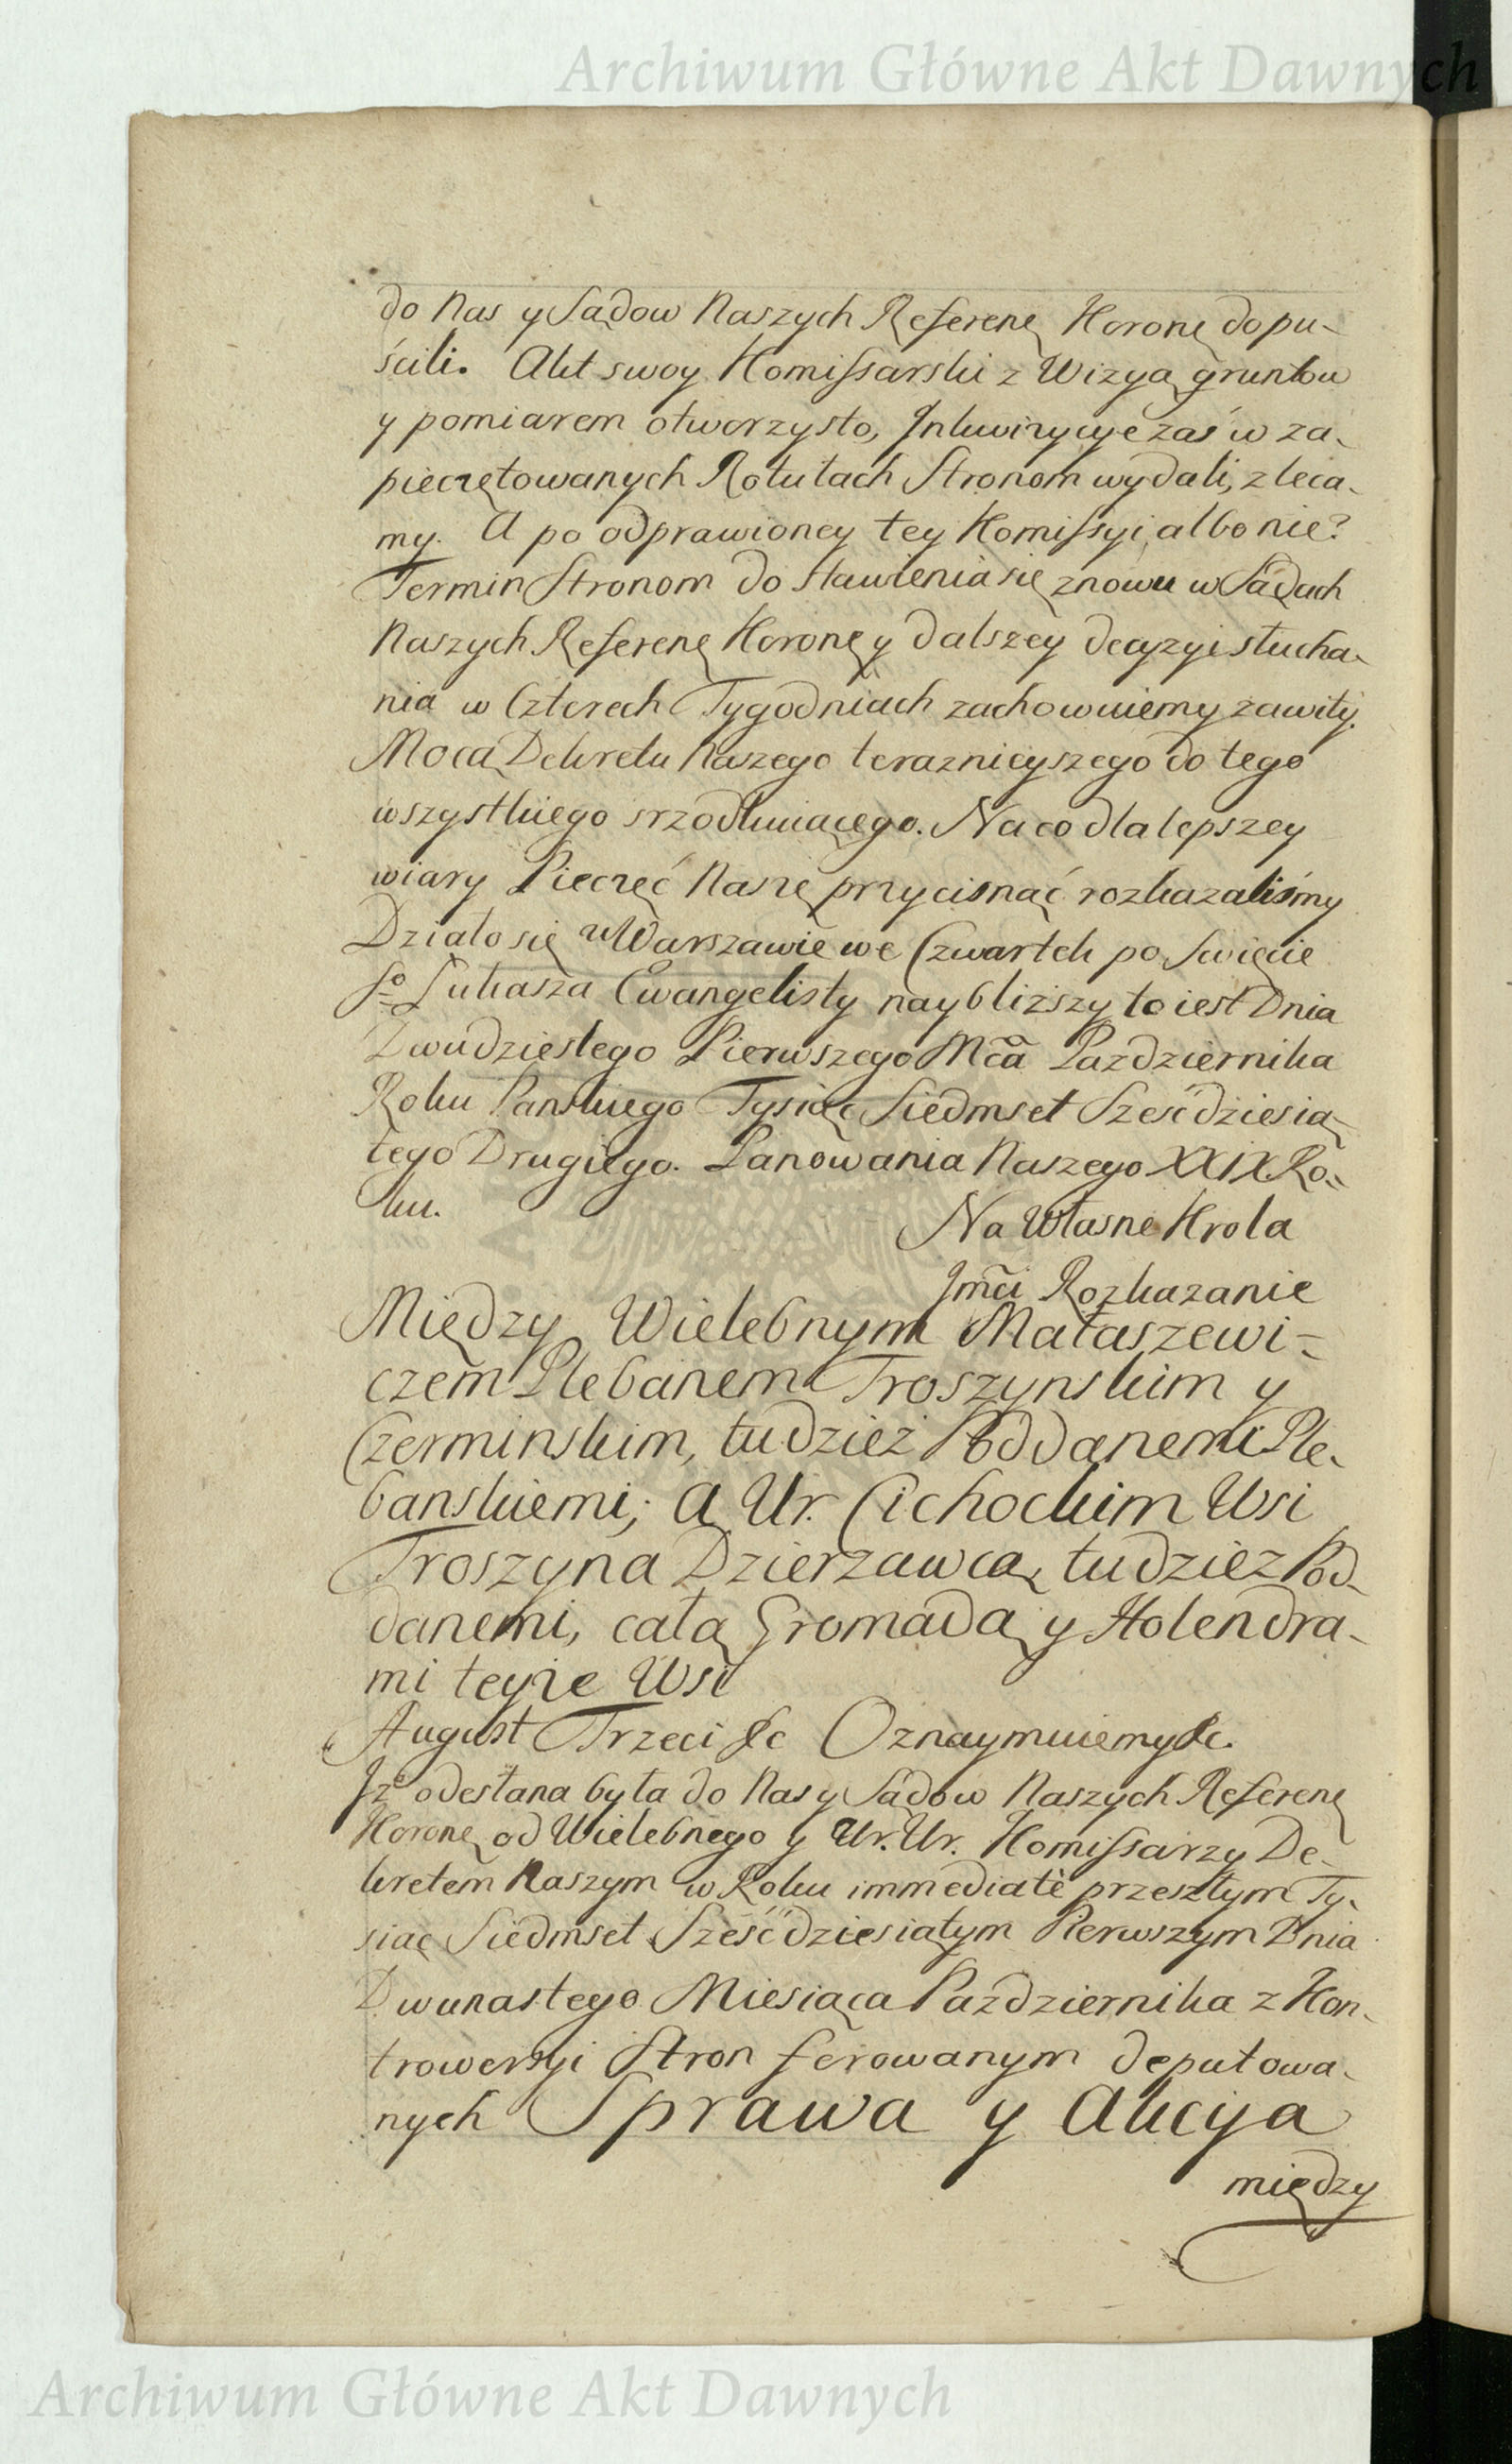 Archiwum Główne Akt Dawnych
do Nas y Sądow Naszych Referenę Koronę dopu-
ścili. Akt swoy Komissarski z Wizyą gruntow
y pomiarem otworzysto, Inkwizycye zaś w za-
pieczętowanych Rotułach Stronom wydali, zleca-
my. A po odprawioney tey Komissyi, albo nie?
Termin Stronom do stawienia się znowu w Sądach
Naszych Referenę Koronę y dalszey decyzyi słucha-
nia w Czterech Tygodniach zachowuiemy zawity.
Mocą Dekretu Naszego teraznieyszego do tego
wszystkiego srzodkuiącego. Na co dla lepszey
wiary Pieczęć Naszę przycisnąć rozkazaliśmy
Działo się w Warszawie we Czwartek po Swięcie
So Łukasza Ewangelisty naybliższy to iest Dnia
Dwudziestego Pierwszego Mca Pazdziernika
Roku Panskiego Tysiąc Siedmset Sześćdziesią-
tego Drugiego. Panowania Naszego XXIX Ro-
ku.
Na Własne Krola
Jmci Rozkazanie
Między Wielebnym Mataszewi-
czem Plebanem Troszynskim y
Czerminskim, tudzież Poddanemi Ple-
banskiemi; a Ur. Cichockim Wsi
Troszyna Dzierzawcą, tudziez Pod-
danemi, całą Gromadą y Holendra-
mi teyże Wsi
August Trzeci &c Oznaymuiemy &c.
Iż odesłana była do Nas y Sądow Naszych Referenę
Koronę od Wielebnego y Ur. Ur. Komissarzy De-
kretem Naszym w Roku immediatè przeszłym Ty-
siąc Siedmset Sześćdziesiątym Pierwszym Dnia
Dwunastego Miesiąca Pazdziernika z Kon-
trowersyi Stron ferowanym deputowa-
nych Sprawa y Akcya
między
Archiwum Główne Akt Dawnych